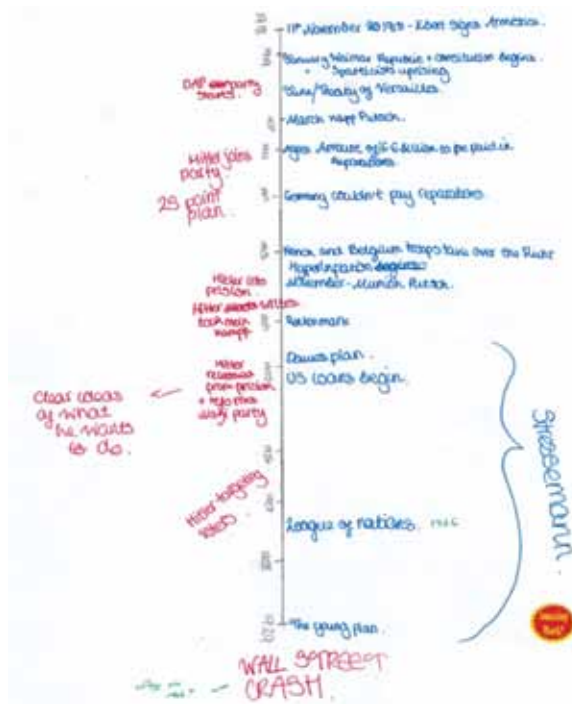 1918
11th November 1918 - Ebert signs Armistice.
1919
January Weimar Republic + constitution begins.
+ Spartacists uprising
DAP party starts.
June/Treaty of Versailles.
March Kapp Putsch.
Hitler joins
party
25 point
plan.
to be paid in
Reparations
Germany couldn't pay reparations.
French and Belgium troops take over the Ruhr
Hyperinflation begins
November - Munich Putsch.
Hitler into
prison.
Hitler writes
book mein
kampf
Rentenmark
Dawes plan.
US loans begin.
Hitler
released
from prison
+ nazi party
Clear ideas
of what
he wants
to do.
Stresemann.
Hitler targeting
League of nations. 1926
1928
The young plan.
1929
WALL STREET
CRASH.